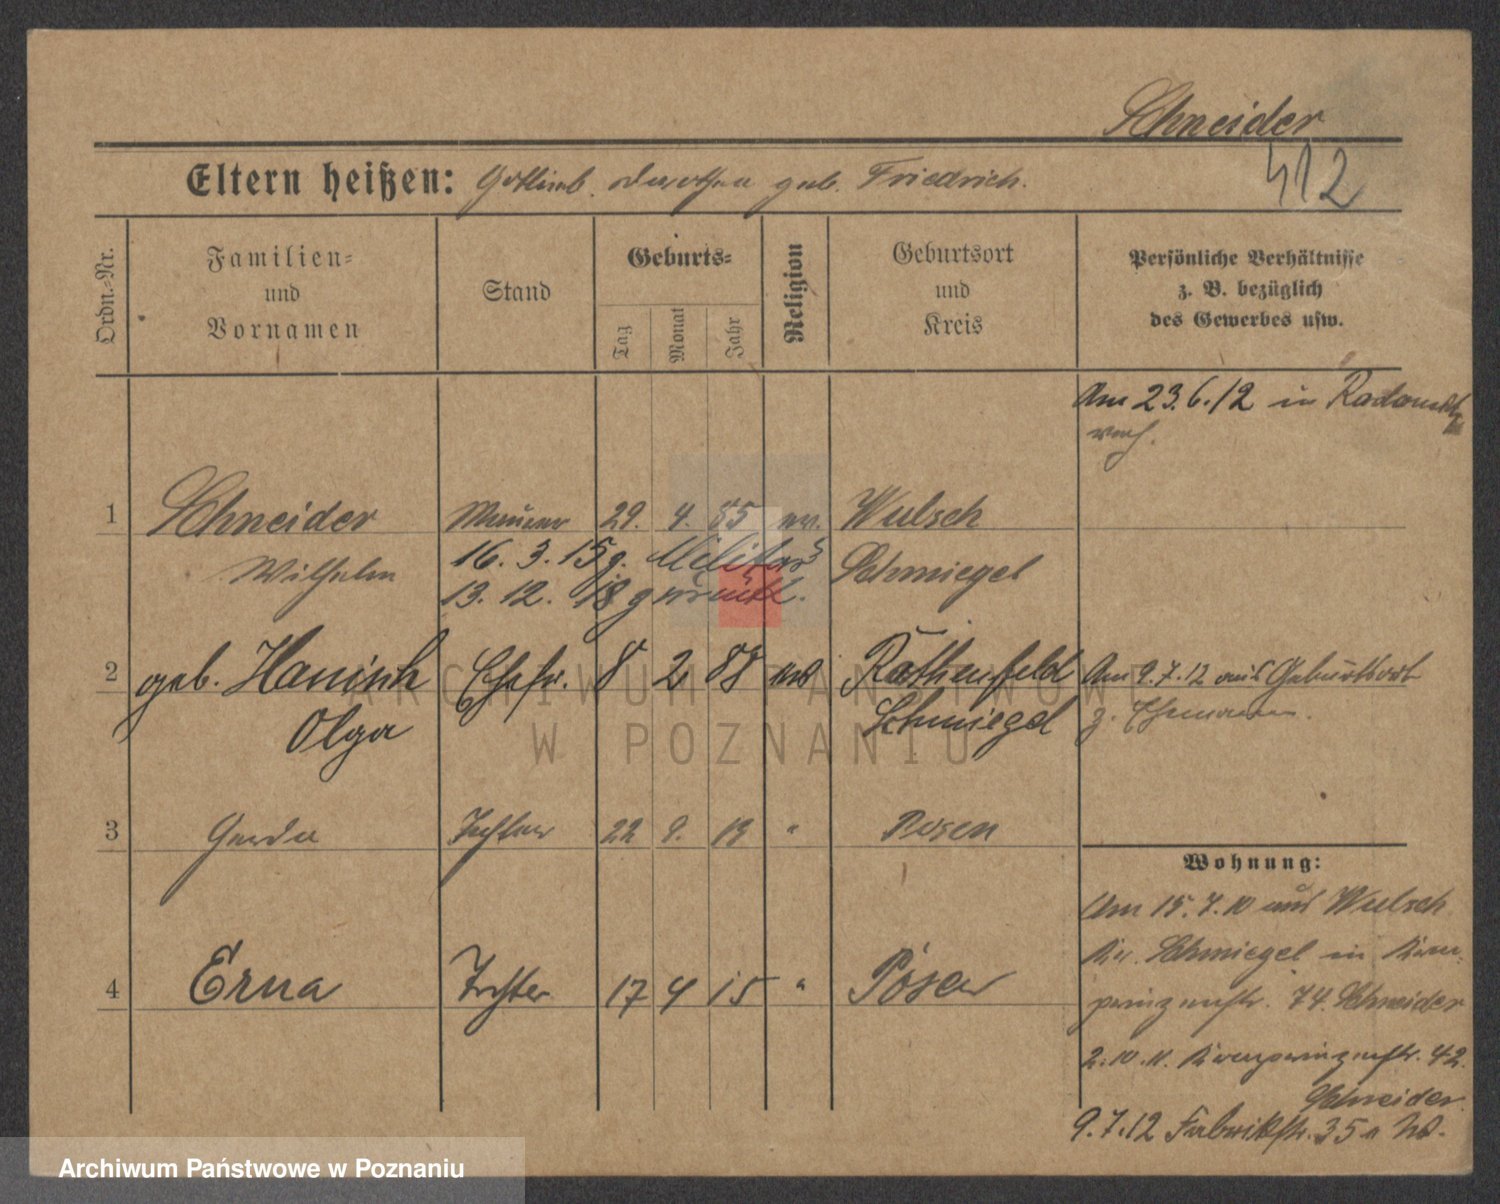 Schneider
412
Eltern heißen: Gottlieb. Dorothea geb. Friedrich.
Ordn.-Nr.
Familien-
und
Vornamen
Stand
Geburts-
Tag
Monat
Jahr
Religion
Geburtsort
und
Kreis
Persönliche Verhältnisse
z. B. bezüglich
des Gewerbes usw.
Am 23.6.12 in
verh.
1 Schneider Maurer 29. 4. 85 ev. Wulsch
Wilhelm 16. 3. 15 z. Militär Schmiegel
13. 12. 18 zurück.
2 geb. Hanisch Ehefr. 8 2 88 Rathenfeld Am 9.7.12 aus Geburtsort
Olga Schmiegel z. Ehemann.
3 Gerda Tochter 22 9. 13 " Posen
4 Erna Tochter 17 4 15 " Posen
Wohnung:
Am 15.7.10 aus Wulsch
Kr. Schmiegel in Kron-
prinzenstr. 74. Schneider
2.10.11. Kronprinzenstr. 42.
Schneider.
9.7.12 Fabrikstr. 35
ARCHIWUM PAŃSTWOWE
W POZNANIU
Archiwum Państwowe w Poznaniu